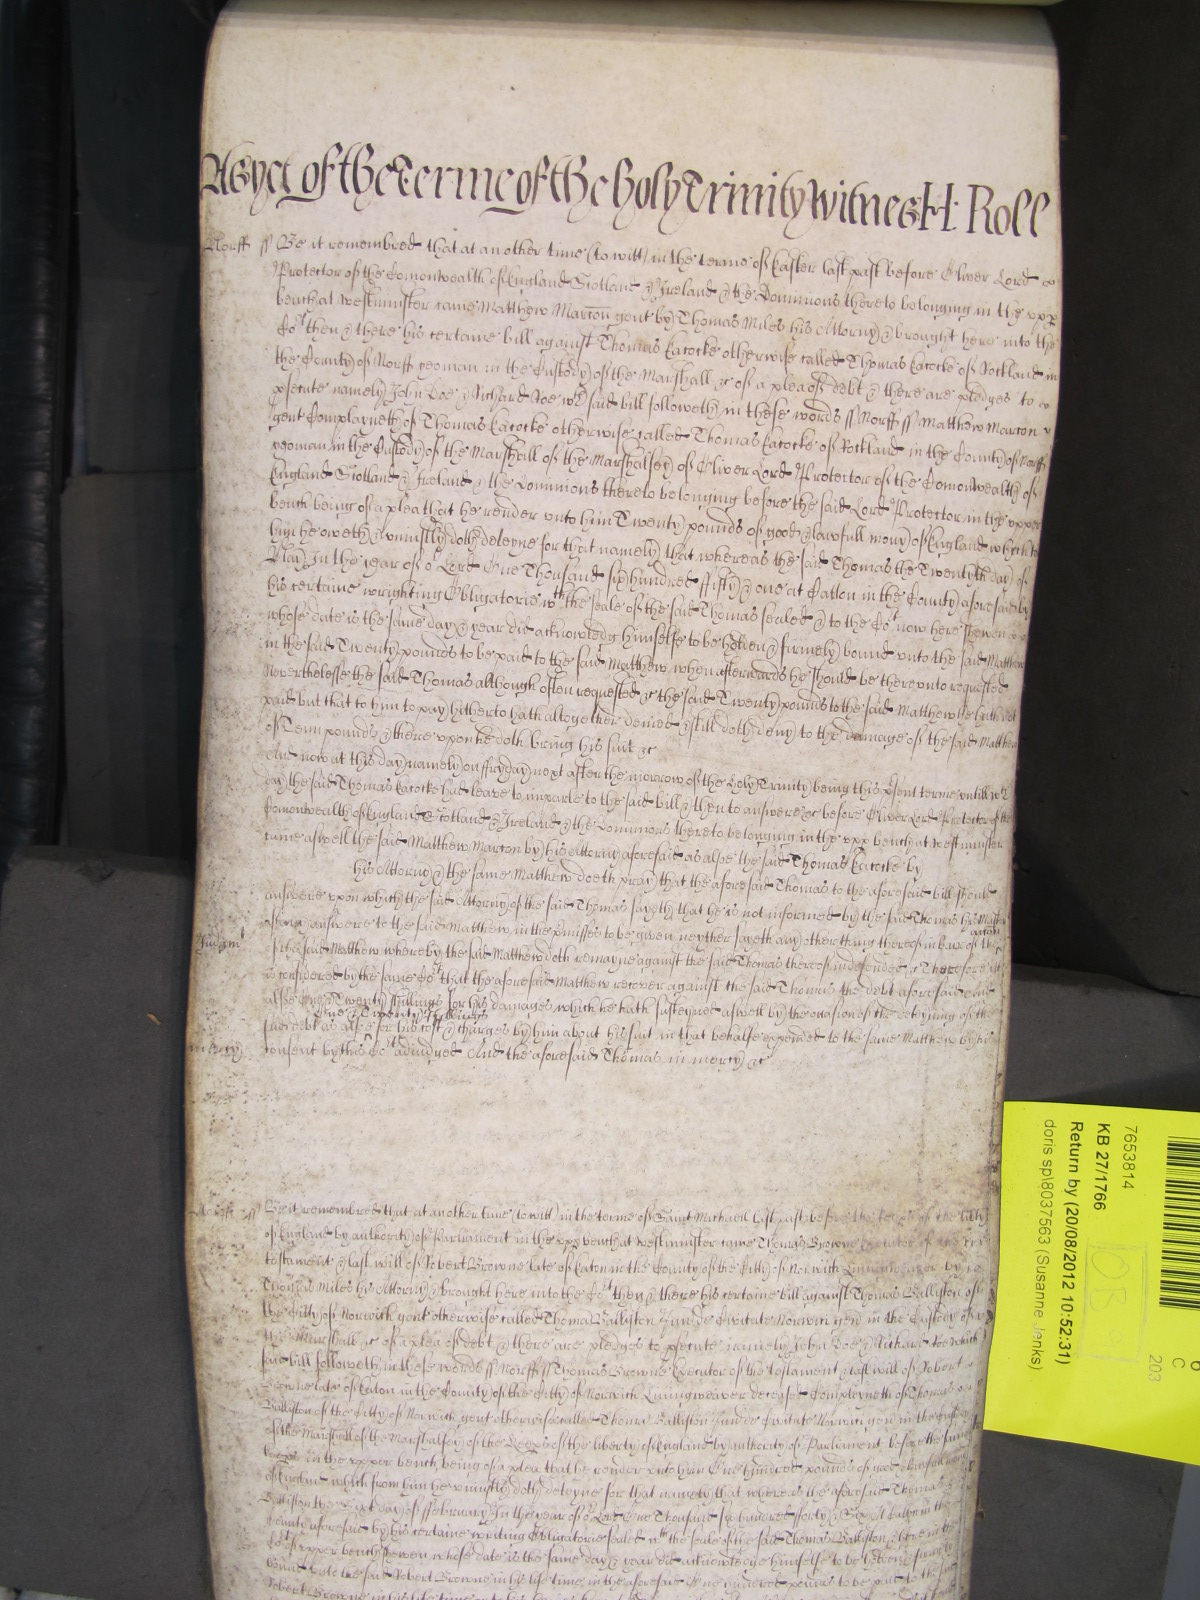 As yet of the Terme of the holy Trinity Witnes H: Roll
Norff ss Be it remembred that at an other time (to witt) in the terme of Easter last past before Oliver Lord
Protector of the Comonwealth of England Scotland & Ireland & the Dominions thereto belonging in the upp
bench at Westminster came Matthew Marcon gent by Thomas Miles his Attorny & brought here into the
Cot then & there his certaine bill against Thomas Lacocke otherwise called Thomas Lacocke of Rockland in
the County of Norff yeoman in the Custody of the Marshall &c of a plea of debt & there are pledges to
psecute namely John Doe & Richard Roe wch said bill followeth in these words ss Norff ss Matthew Marcon
gent Complayneth of Thomas Lacocke otherwise called Thomas Lacocke of Rockland in the County of Norff
yeoman in the Custody of the Marshall of the Marshalsey of Oliver Lord Protector of the Comonwealth of
England Scotland & Ireland & the Dominions thereto belonging before the said Lord Protector in the upper
bench being of a plea that he render unto him Twenty pounds of good & lawfull mony of England which to
him he oweth & uniustly doth deteyne for that namely that whereas the said Thomas the Twentyth day of
May In the year of or Lord One Thousand six hundred ffifty & one at Catton in the County aforesaid by
his certaine wrighting Obligatorie wth the seale of the said Thomas sealed & to the Cot now here shewen
whose date is the same day & year did acknowledg himselfe to be holden & firmely bound unto the said Matthew
in the said Twenty pounds to be paid to the said Matthew when afterwards he should be thereunto requested
Neverthelesse the said Thomas although often requested &c the said Twenty pounds to the said Matthew he hath not
paid but that to him to pay hitherto hath altogether denied & still doth deny to the damage of the said Matthew
of Tenn pounds & thereupon he doth bring his suit &c
And now at this day namely on ffryday next after the morrow of the holy Trinity being this psent terme untill wch
day the said Thomas Lacocke had leave to imparle to the said bill & then to answere &c before Oliver Lord Protector of the
Comonwealth of England Scotland & Ireland & the Dominions thereto belonging in the upp bench at Westminster
came aswell the said Matthew Marcon by his Attorny aforesaid as alsoe the said Thomas Lacocke by
his Attorny & the same Matthew doeth pray that the aforesaid Thomas to the aforesaid bill should
answere upon which the said Attorny of the said Thomas sayeth that he is not informed by the said Thomas his Master
of any answere to the said Matthew in the pmisses to be given neyther sayeth any other thing thereof in bar of the
action
Judgmt
of the said Matthew whereby the said Matthew doth remayne against the said Thomas thereof undefended &c Therefore it
is considered by the same Cot that the aforesaid Matthew recover against the said Thomas the debt aforesaid and
alsoe One & Twenty shillings for his damages which he hath susteyned aswell by the occasion of the deteyning of the
One & Twenty shillings
said debt as alsoe for his cost & charges by him about his suit in that behalfe expended to the same Matthew by his
in mercy
consent by this Cot adiudged And the aforesaid Thomas in mercy &c
Norff ss Be it remembred that at an other time (to witt) in the terme of Saint Michaell last past before the of the liberty
of England by authority of Parliament in the upp bench at Westminster came Thomas Browne Executor of the
testament & last will of Robert Browne late of Eaton in the County of the Citty of Norwich Linningweaver by
Thomas Miles his Attorny & brought here into the Cot then & there his certaine bill against Thomas Balliston of
the Citty of Norwich gent otherwise called Thomas Balliston Jun de Civitate Norwici gen in the Custody of
the Marshall &c of a plea of debt & there are pledges to psecute namely John Doe & Richard Roe which
said bill followeth in these words ss Norff ss Thomas Browne Executor of the testament & last will of Robert
Browne late of Eaton in the County of the Citty of Norwich Linningweaver deceased Complayneth of Thomas
Balliston of the Citty of Norwich gent otherwise called Thomas Balliston Jun de Civitate Norwici gen in the Custody
of the Marshall of the Marshalsey of the Keepers of the liberty of England by authority of Parliament before the same
Keepers in the upper bench being of a plea that he render unto him One hundred pounds of good & lawfull mony
of England which from him he uniustly doth deteyne for that namely that whereas the aforesaid Thomas
Balliston the day of ffebruary In the year of or Lord One Thousand six hundred forty & Six at Catton in the
County aforesaid by his certaine writing Obligatorie sealed wth the seale of the said Thomas Balliston & here in the
Cot of upper bench shewen whose date is the same day & year did acknowledge himselfe to be holden & firmely
bound unto the said Robert Browne in his life time in the aforesaid One hundred pounds to be paid to the said
Robert Browne in his life time
7653814
KB 27/1766
Return by (20/08/2012 10:52:31)
doris sp\8037563 (Susanne Jenks)
203
C
6